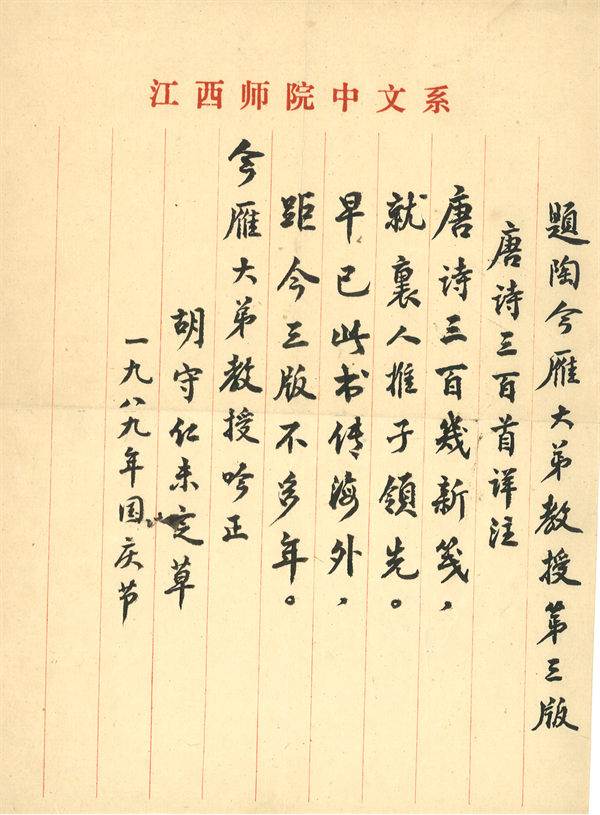 江西师院中文系
题陶今雁大弟教授第三版
唐诗三百首详注
唐诗三百几新笺，
就里人推子领先。
早已此书传海外，
距今三版不多年。
今雁大弟教授吟正
胡守仁未定草
一九八九年国庆节